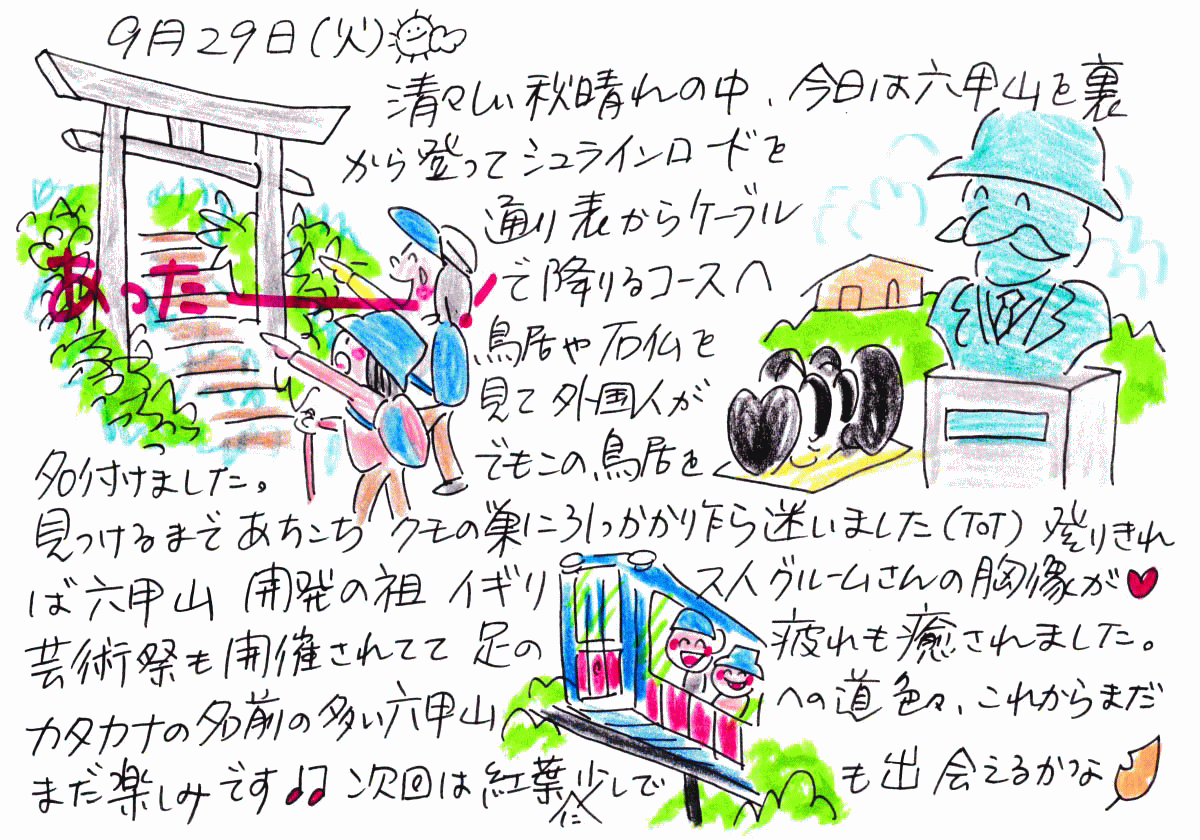 9月29日(火)
清々しい秋晴れの中、今日は六甲山を裏
から登ってシュラインロードを
通り表からケーブル
で降りるコースへ
あったー!
鳥居や石仏を
見て外国人が
名付けました。
でもこの鳥居を
見つけるまであちこちクモの巣にひっかかり乍ら迷いました(ToT)登りきれ
ば六甲山開発の祖イギリス人グルームさんの胸像が
芸術祭も開催されてて足の疲れも癒されました。
カタカナの名前の多い六甲山への道色々、これからまだ
まだ楽しみです♪♫次回は紅葉に少しでも出会えるかな